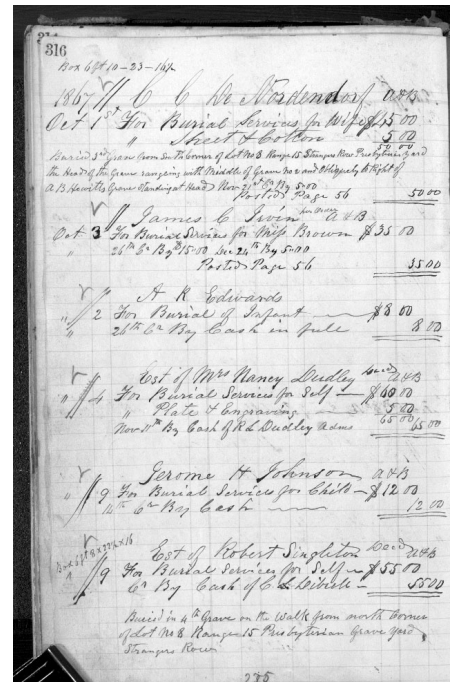 316
Box 6ft 10-23-16½
1867 // C C De Nordendorf A&B
Oct 1st For Burial Services for Wife $45 00
" Sheet & Cotton 5 00
50 00
Buried 3rd Grave from South corner of Lot No 8 Range 15 Strangers Row Presbyterian Yard
the Head of the Grave ranging with Middle of Grave No 2 and Obliquely to Right of
A B Hewitts Grave Standing at Head Nov 21st By 5.00
Posted Page 56 50 00
// James C Irvin A&B
Oct 3 For Burial Services for Miss Brown $35 00
" 26th Cr By $15.00 Dec 24th By 5.00
Posted Page 56 35 00
A R Edwards
" // 2 For Burial of Infant $8 00
" 26th Cr By Cash in full 8 00
Est of Mrs Nancy Dudley Decd A&B
" // 4 For Burial Services for Self $60 00
" Plate & Engraving 5 00
65 00
Nov 11th By Cash of R L Dudley Adms 65 00
Jerome H Johnson A&B
" // 9 For Burial Services for Child $12 00
14th Cr By Cash 12 00
Box 6ft 8 x 22½ x 16
Est of Robert Singleton Decd A&B
// 9 For Burial Services for Self $55 00
Cr By Cash of C L 55 00
Buried in 4th Grave on the Walk from north Corner
of Lot No 8 Range 15 Presbyterian Grave Yard
Strangers Row